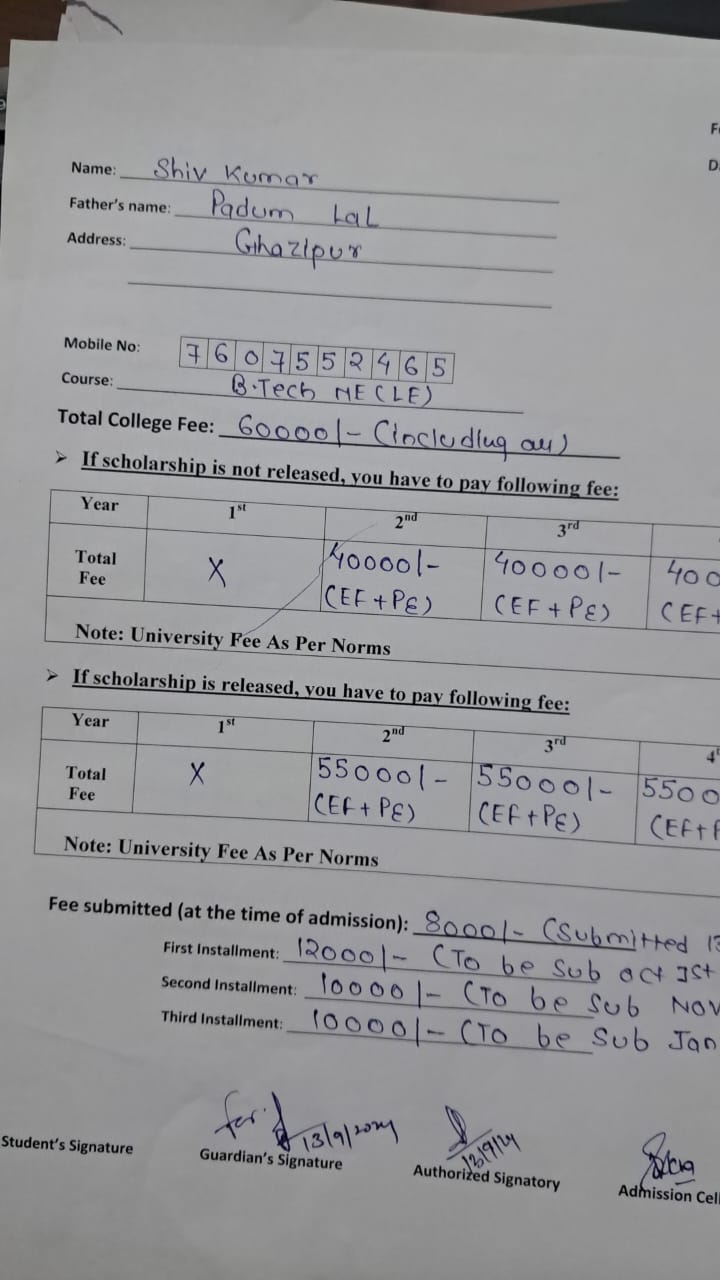 Name: Shiv Kumar
Father's name: Padum Lal
Address: Ghazipur
Mobile No: 7607552465
Course: B.Tech ME (LE)
Total College Fee: 60000/- (including all)
➢ If scholarship is not released, you have to pay following fee:
Year 1st 2nd 3rd
Total Fee X 40000/- (EF+PE) 40000/- (EF+PE) 400 (EF+
Note: University Fee As Per Norms
➢ If scholarship is released, you have to pay following fee:
Year 1st 2nd 3rd 4
Total Fee X 55000/- (EF+PE) 55000/- (EF+PE) 5500 (EF+
Note: University Fee As Per Norms
Fee submitted (at the time of admission): 8000/- (Submitted
First Installment: 12000/- (To be Sub Oct
Second Installment: 10000/- (To be Sub Nov
Third Installment: 10000/- (To be Sub Jan
13/9/2024 13/9/24
Student's Signature Guardian's Signature Authorized Signatory Admission Cell